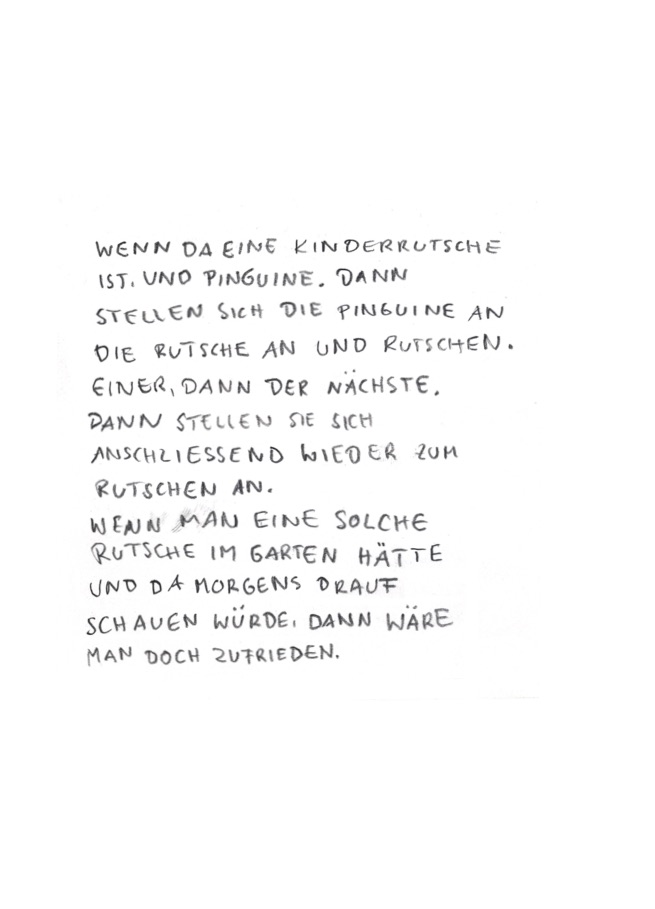 WENN DA EINE KINDERRUTSCHE
IST, UND PINGUINE. DANN
STELLEN SICH DIE PINGUINE AN
DIE RUTSCHE AN UND RUTSCHEN.
EINER, DANN DER NÄCHSTE.
DANN STELLEN SIE SICH
ANSCHLIESSEND WIEDER ZUM
RUTSCHEN AN.
WENN MAN EINE SOLCHE
RUTSCHE IM GARTEN HÄTTE
UND DA MORGENS DRAUF
SCHAUEN WÜRDE, DANN WÄRE
MAN DOCH ZUFRIEDEN.